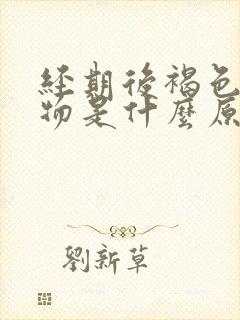 經期後褐色
物是什麼原
劉新草